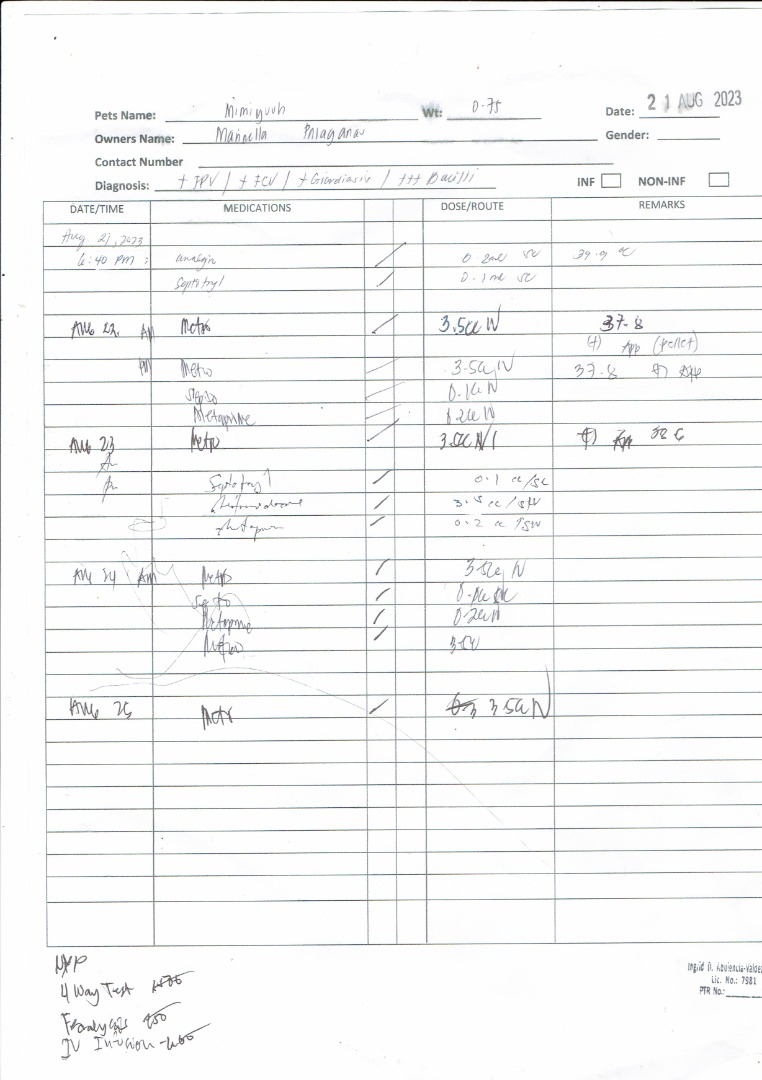 Pets Name: Mimiyuuh Wt: 0.75 Date: 21 AUG 2023
Owners Name: Gender:
Contact Number
Diagnosis: + FPV / + FCV / + Giardiasis / +++ Bacilli INF NON-INF
DATE/TIME MEDICATIONS DOSE/ROUTE REMARKS
Aug 21, 2023
6:40 PM : analgin 0.2ml SC 39.9 °C
Septotryl 0.1ml SC
AUG 22 AM Metro 3.5cc IV 37.8
(+) App (pellet)
PM Metro 3.5cc IV 37.8 (+) App
Septo 0.1cc IV
0.2cc IV
AUG 23 Metro 3.5cc IV (+)
Septotryl 0.1 cc/SC
3.5 cc /
0.2 cc
AUG 24 AM Metro 3.5cc IV
Septo
0.2cc IV
Metro 3.5
AUG 25 Metr 3.5cc IV
4 Way Test
Fecalysis
IV Infusion
Ingrid D. Abulencia-Valdez
Lic. No.: 7981
PTR No.: